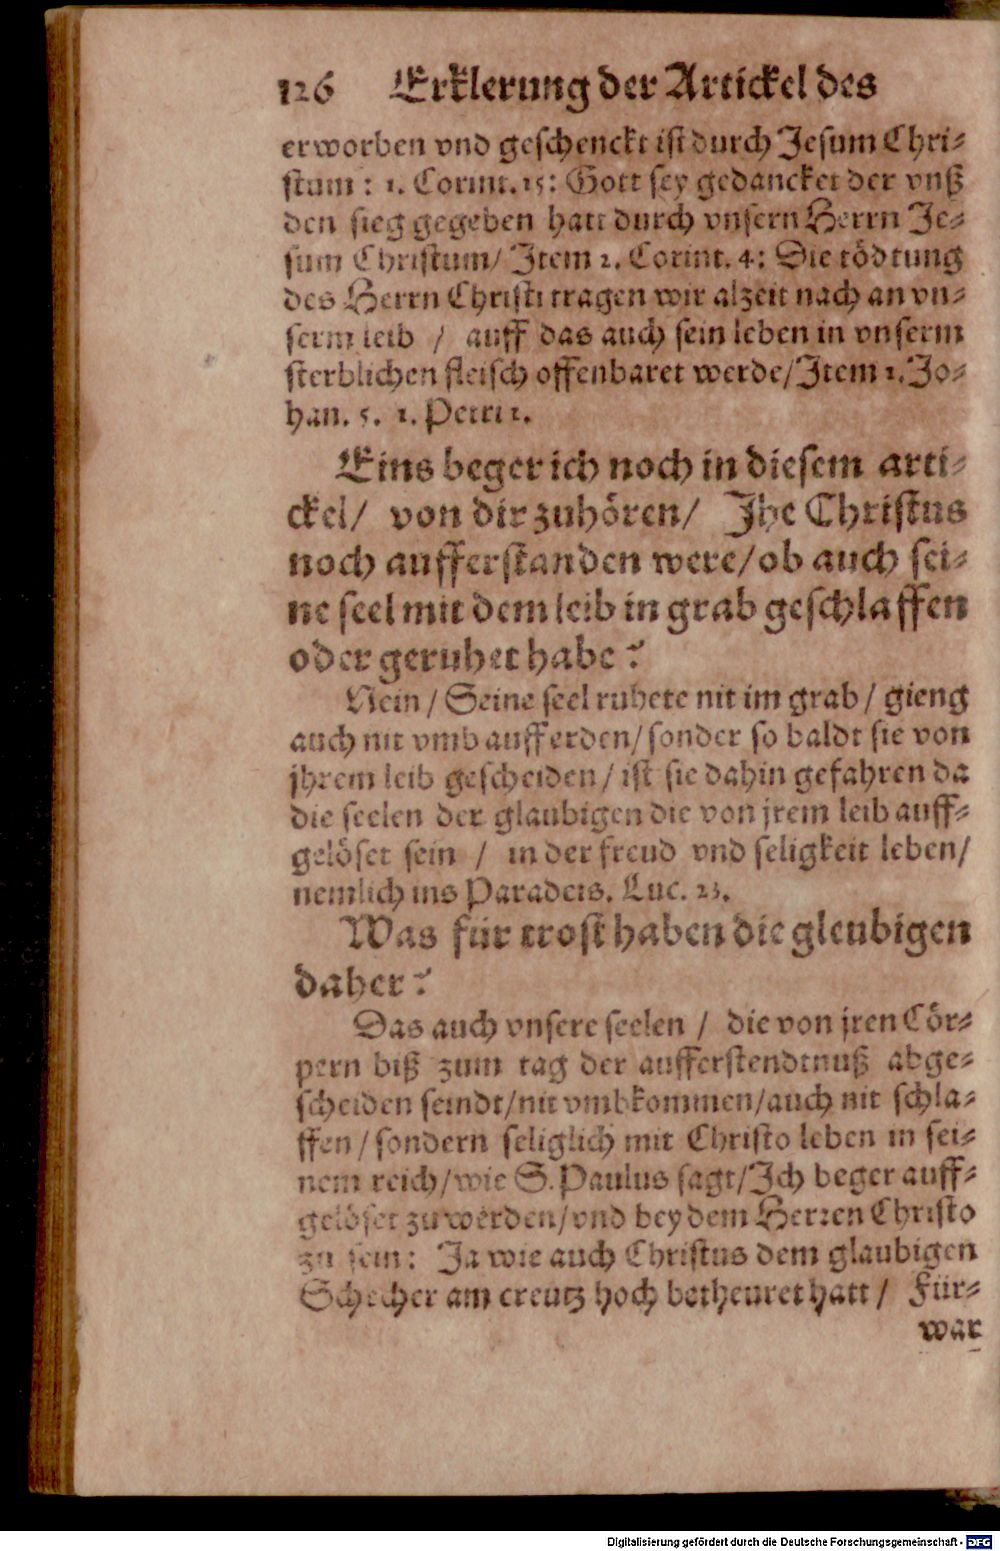 126 Erklerung der Artickel des
erworben vnd geschenckt ist durch Jesum Chri-
stum : 1. Corint. 15: Gott sey gedancket der vnß
den sieg gegeben hatt durch vnsern Herrn Je-
sum Christum/ Item 2. Corint. 4: Die tödtung
des Herrn Christi tragen wir alzeit nach an vn-
serm leib / auff das auch sein leben in vnserm
sterblichen fleisch offenbaret werde/Item 1. Jo-
han. 5. 1. Petri 1.
Eins beger ich noch in diesem arti-
ckel/ von dir zuhören/ Jhe Christus
noch aufferstanden were/ob auch sei-
ne seel mit dem leib in grab geschlaffen
oder geruhet habe?
Nein / Seine seel ruhete nit im grab / gieng
auch nit vmb auff erden/sonder so baldt sie von
jhrem leib gescheiden / ist sie dahin gefahren da
die seelen der glaubigen die von jrem leib auff-
gelöset sein / in der freud vnd seligkeit leben/
nemlich ins Paradeis. Luc. 23.
Was für trost haben die gleubigen
daher?
Das auch vnsere seelen / die von jren Cör-
pern biß zum tag der aufferstendtnuß abge-
scheiden seindt/nit vmbkommen/auch nit schla-
ffen / sondern seliglich mit Christo leben in sei-
nem reich/wie S. Paulus sagt/Ich beger auff-
gelöset zu werden/vnd bey dem Herren Christo
zu sein: Ja wie auch Christus dem glaubigen
Schecher am creutz hoch betheuret hatt / Für-
war
Digitalisierung gefördert durch die Deutsche Forschungsgemeinschaft - DFG